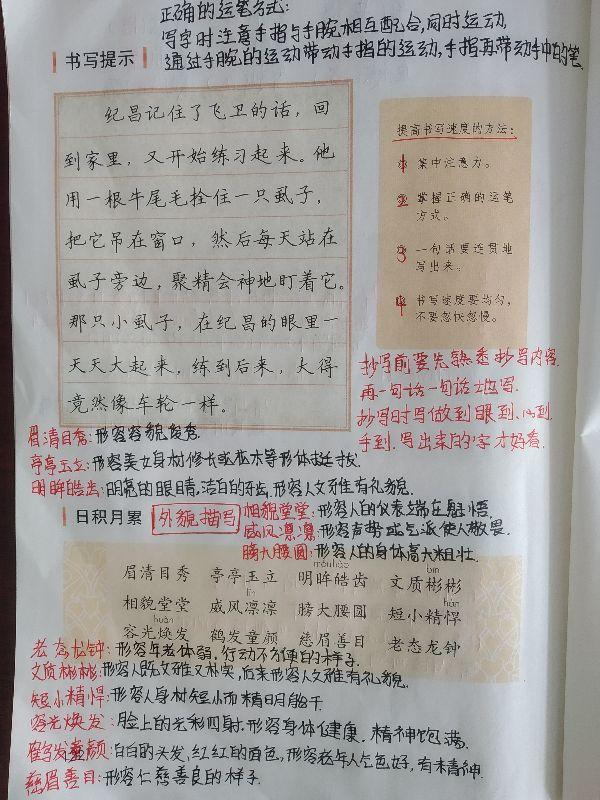 正确的运笔方式:
写字时注意手指与手腕相互配合,同时运动,
通过手腕的运动带动手指的运动,手指再带动手中的笔.
书写提示
纪昌记住了飞卫的话，回
到家里，又开始练习起来。他
用一根牛尾毛拴住一只虱子，
把它吊在窗口，然后每天站在
虱子旁边，聚精会神地盯着它。
那只小虱子，在纪昌的眼里一
天天大起来，练到后来，大得
竟然像车轮一样。
提高书写速度的方法：
1 集中注意力。
2 掌握正确的运笔
方式。
3 一句话要连贯地
写出来。
4 书写速度要均匀，
不要忽快忽慢。
抄写前要先熟悉抄写内容
再一句话一句话地写.
抄写时写做到眼到、心到
手到.写出来的字才好看.
眉清目秀:形容容貌俊秀.
亭亭玉立:形容美女身材修长或花木等形体挺拔.
明眸皓齿:明亮的眼睛,洁白的牙齿,形容人文雅有礼貌.
日积月累
外貌描写
相貌堂堂:形容人的仪表端庄魁梧.
威风凛凛:形容声势或气派使人敬畏.
膀大腰圆:形容人的身体高大粗壮.
móu hào
bīn
眉清目秀 亭亭玉立 明眸皓齿 文质彬彬
lǐn
hàn
相貌堂堂 威风凛凛 膀大腰圆 短小精悍
huàn
容光焕发 鹤发童颜 慈眉善目 老态龙钟
老态龙钟:形容年老体弱,行动不方便的样子.
文质彬彬:形容人既文雅又朴实,后来形容人文雅有礼貌.
短小精悍:形容人身材短小而精明能干.
容光焕发:脸上的光彩四射.形容身体健康、精神饱满.
鹤发童颜:白白的头发,红红的面色,形容老年人气色好,有精神.
慈眉善目:形容仁慈善良的样子.